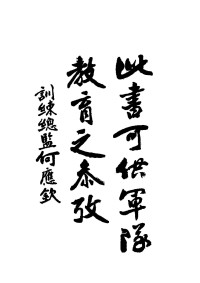 此書可供軍隊
教育之参攷
訓練總監何應欽